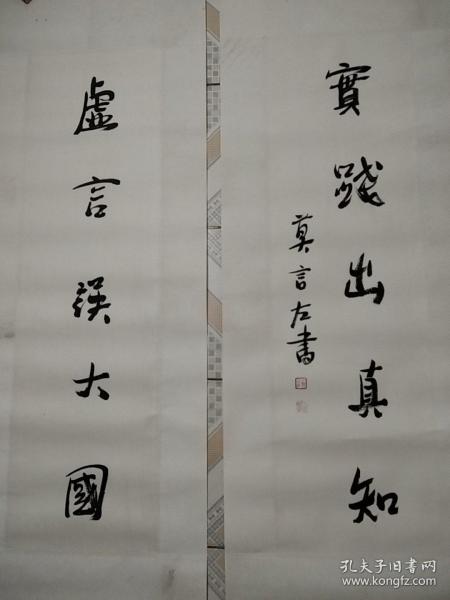 實踐出真知
莫言左書
虛言誤大國
孔夫子旧书网
www.kongfz.com